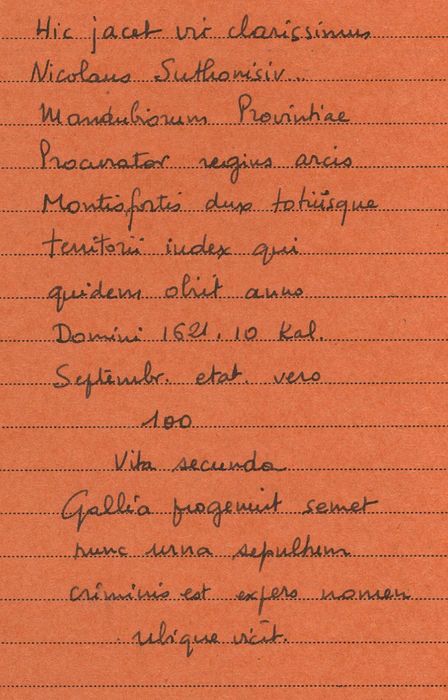 Hic jacet vir clarissimus
Nicolaus Suthonisiv...
Mandubiorum Provintiae
Procurator regius arcis
Montisfortis dux totiüsque
territorii iudex qui
quidem obiit anno
Domini 1621. 10 Kal.
Septembr. etat. vero
100
Vita secunda
Gallia progenuit semet
nunc urna sepultum
criminis est expers nomen
ubique vicit.